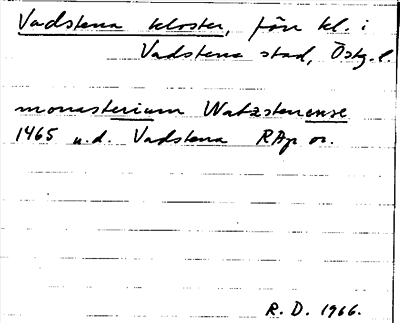 Vadstena kloster, förr kl. i
Vadstena stad, Östg.l.
monasterium Watzstenense
1465 u.d. Vadstena RAp or.
R. D. 1966.